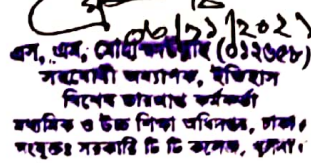 এস, এম, (০১২৬৫৮)
সহযোগী অধ্যাপক, ইতিহাস
বিশেষ ভারপ্রাপ্ত কর্মকর্তা
মাধ্যমিক ও উচ্চ শিক্ষা অধিদপ্তর, ঢাকা।
সংযুক্তঃ সরকারি টি টি কলেজ, খুলনা।